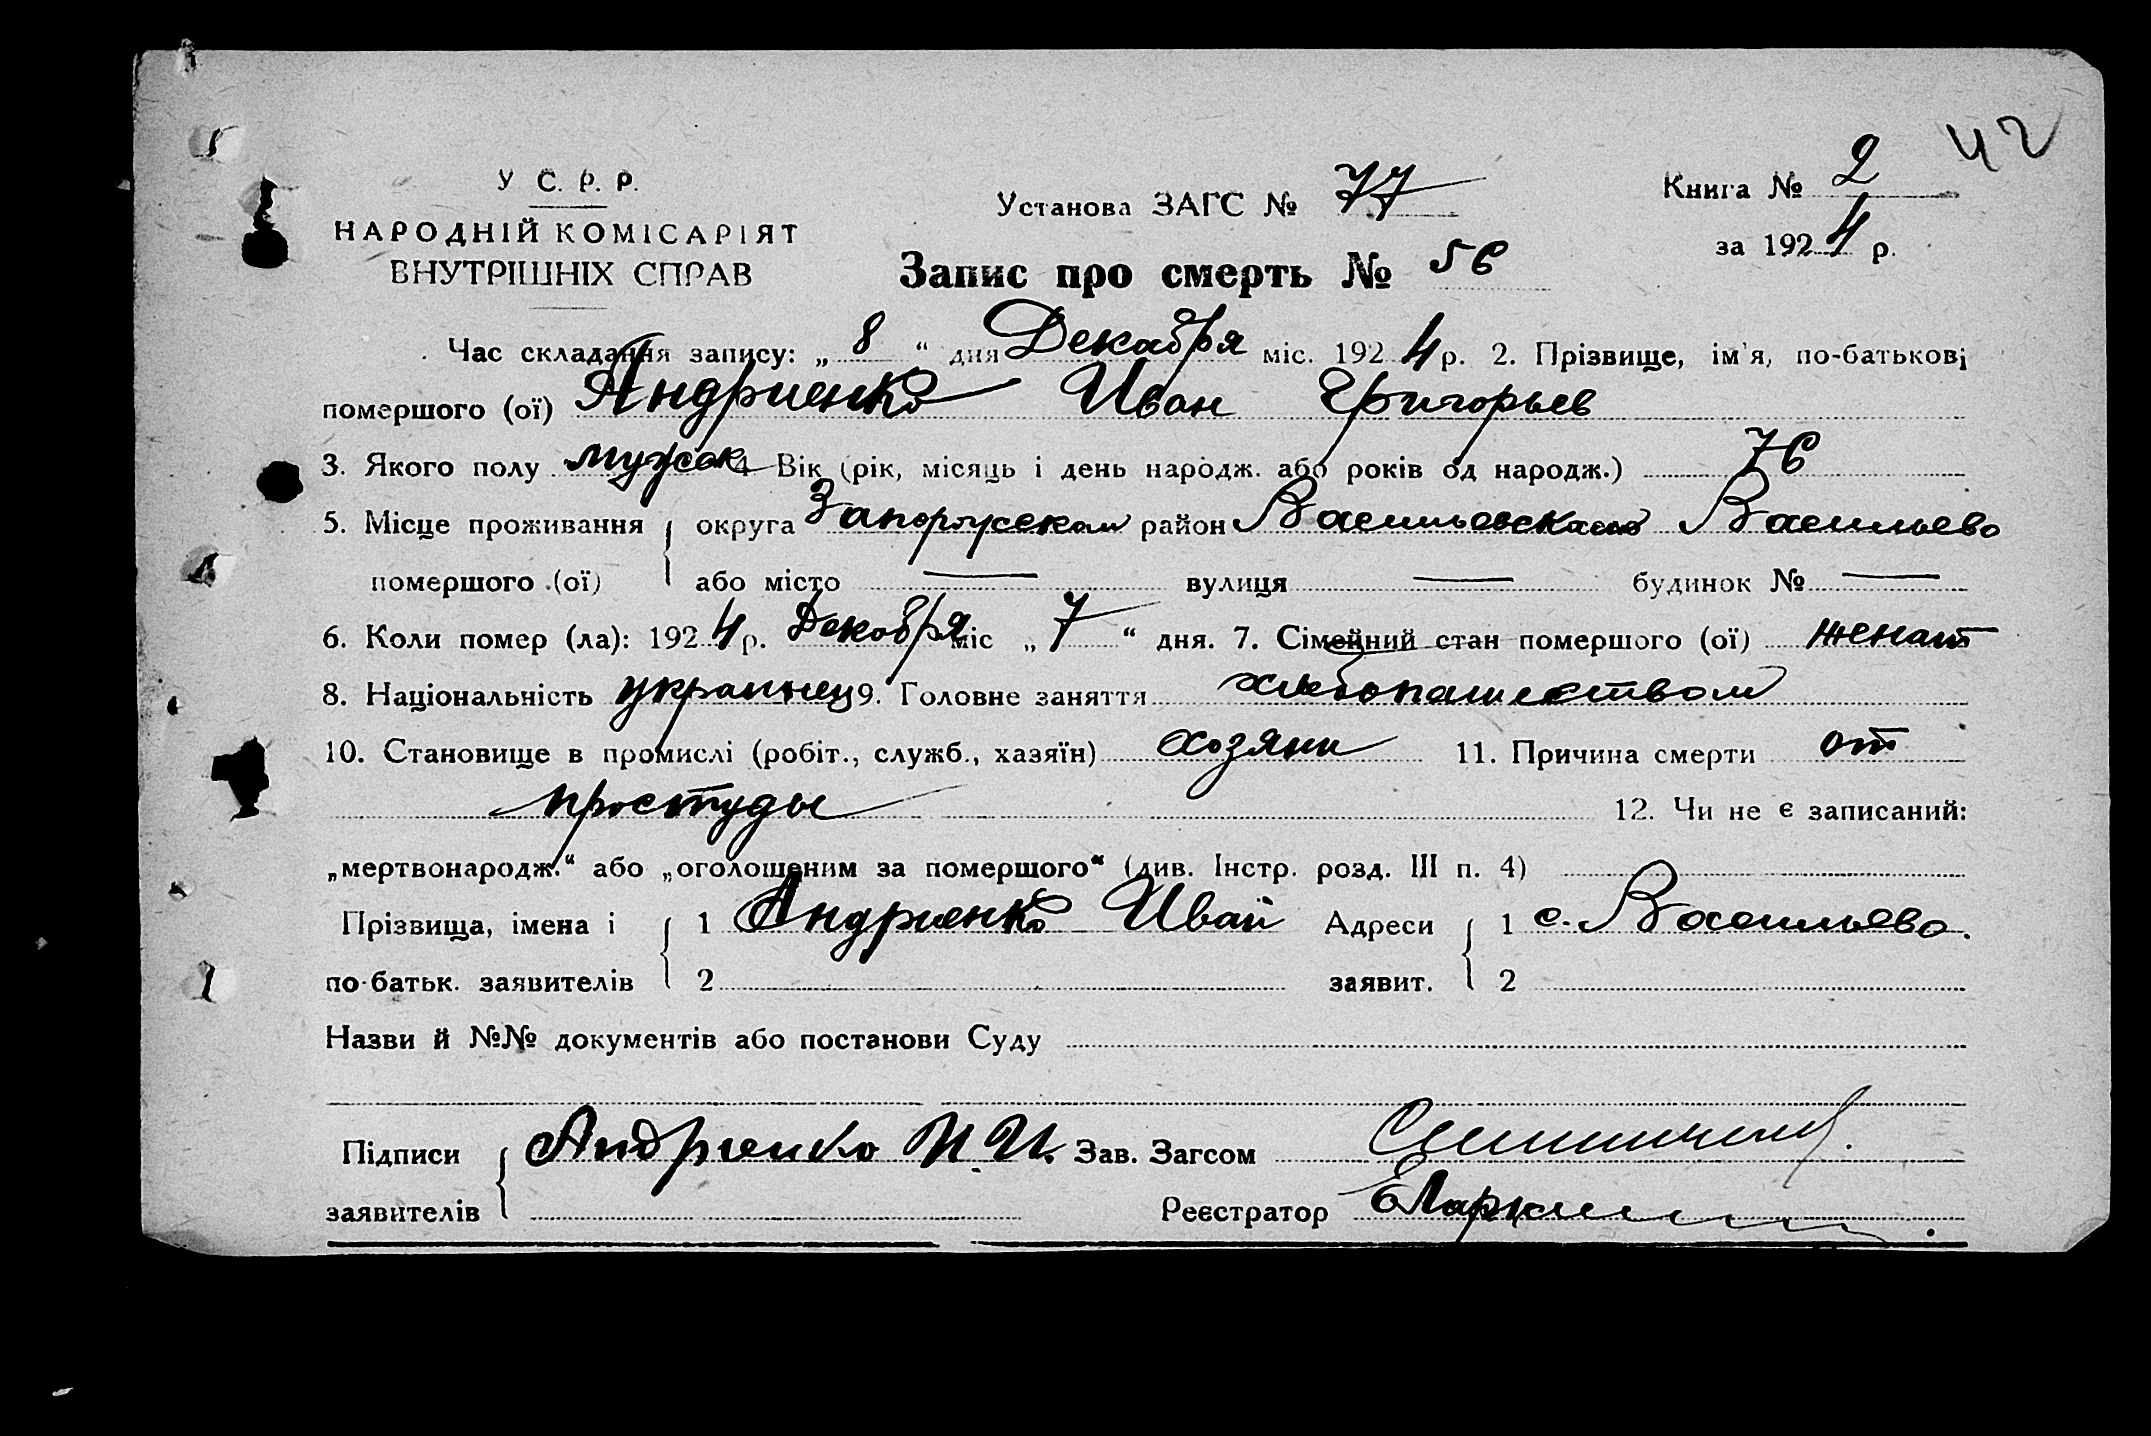 42
У. С. Р. Р.
НАРОДНІЙ КОМІСАРІЯТ
ВНУТРІШНІХ СПРАВ
Установа ЗАГС № 77
Книга № 2
за 1924 р.
Запис про смерть № 56
Час складання запису: „8“ дня Декабря міс. 1924 р. 2. Прізвище, ім'я, по-батькові
помершого (ої) Андриенко Иван Григорьев
3. Якого полу мужск 4. Вік (рік, місяць і день народж. або років од народж.) 76
5. Місце проживання округа район Васильево
помершого (ої) або місто — вулиця — будинок № —
6. Коли помер (ла): 1924 р. Декабря міс „7“ дня. 7. Сімейний стан помершого (ої) женат
8. Національність украинец 9. Головне заняття хлебопашеством
10. Становище в промислі (робіт., служб., хазяїн) хозяин 11. Причина смерти от
простуды 12. Чи не є записаний:
„мертвонародж.“ або „оголошеним за помершого“ (див. Інстр. розд. III п. 4)
Прізвища, імена і 1 Андриенко Иван Адреси 1 с. Васильево.
по-батьк. заявителів 2 заявит. 2
Назви й №№ документів або постанови Суду
Підписи Андриенко И. И. Зав. Загсом
заявителів Реєстратор